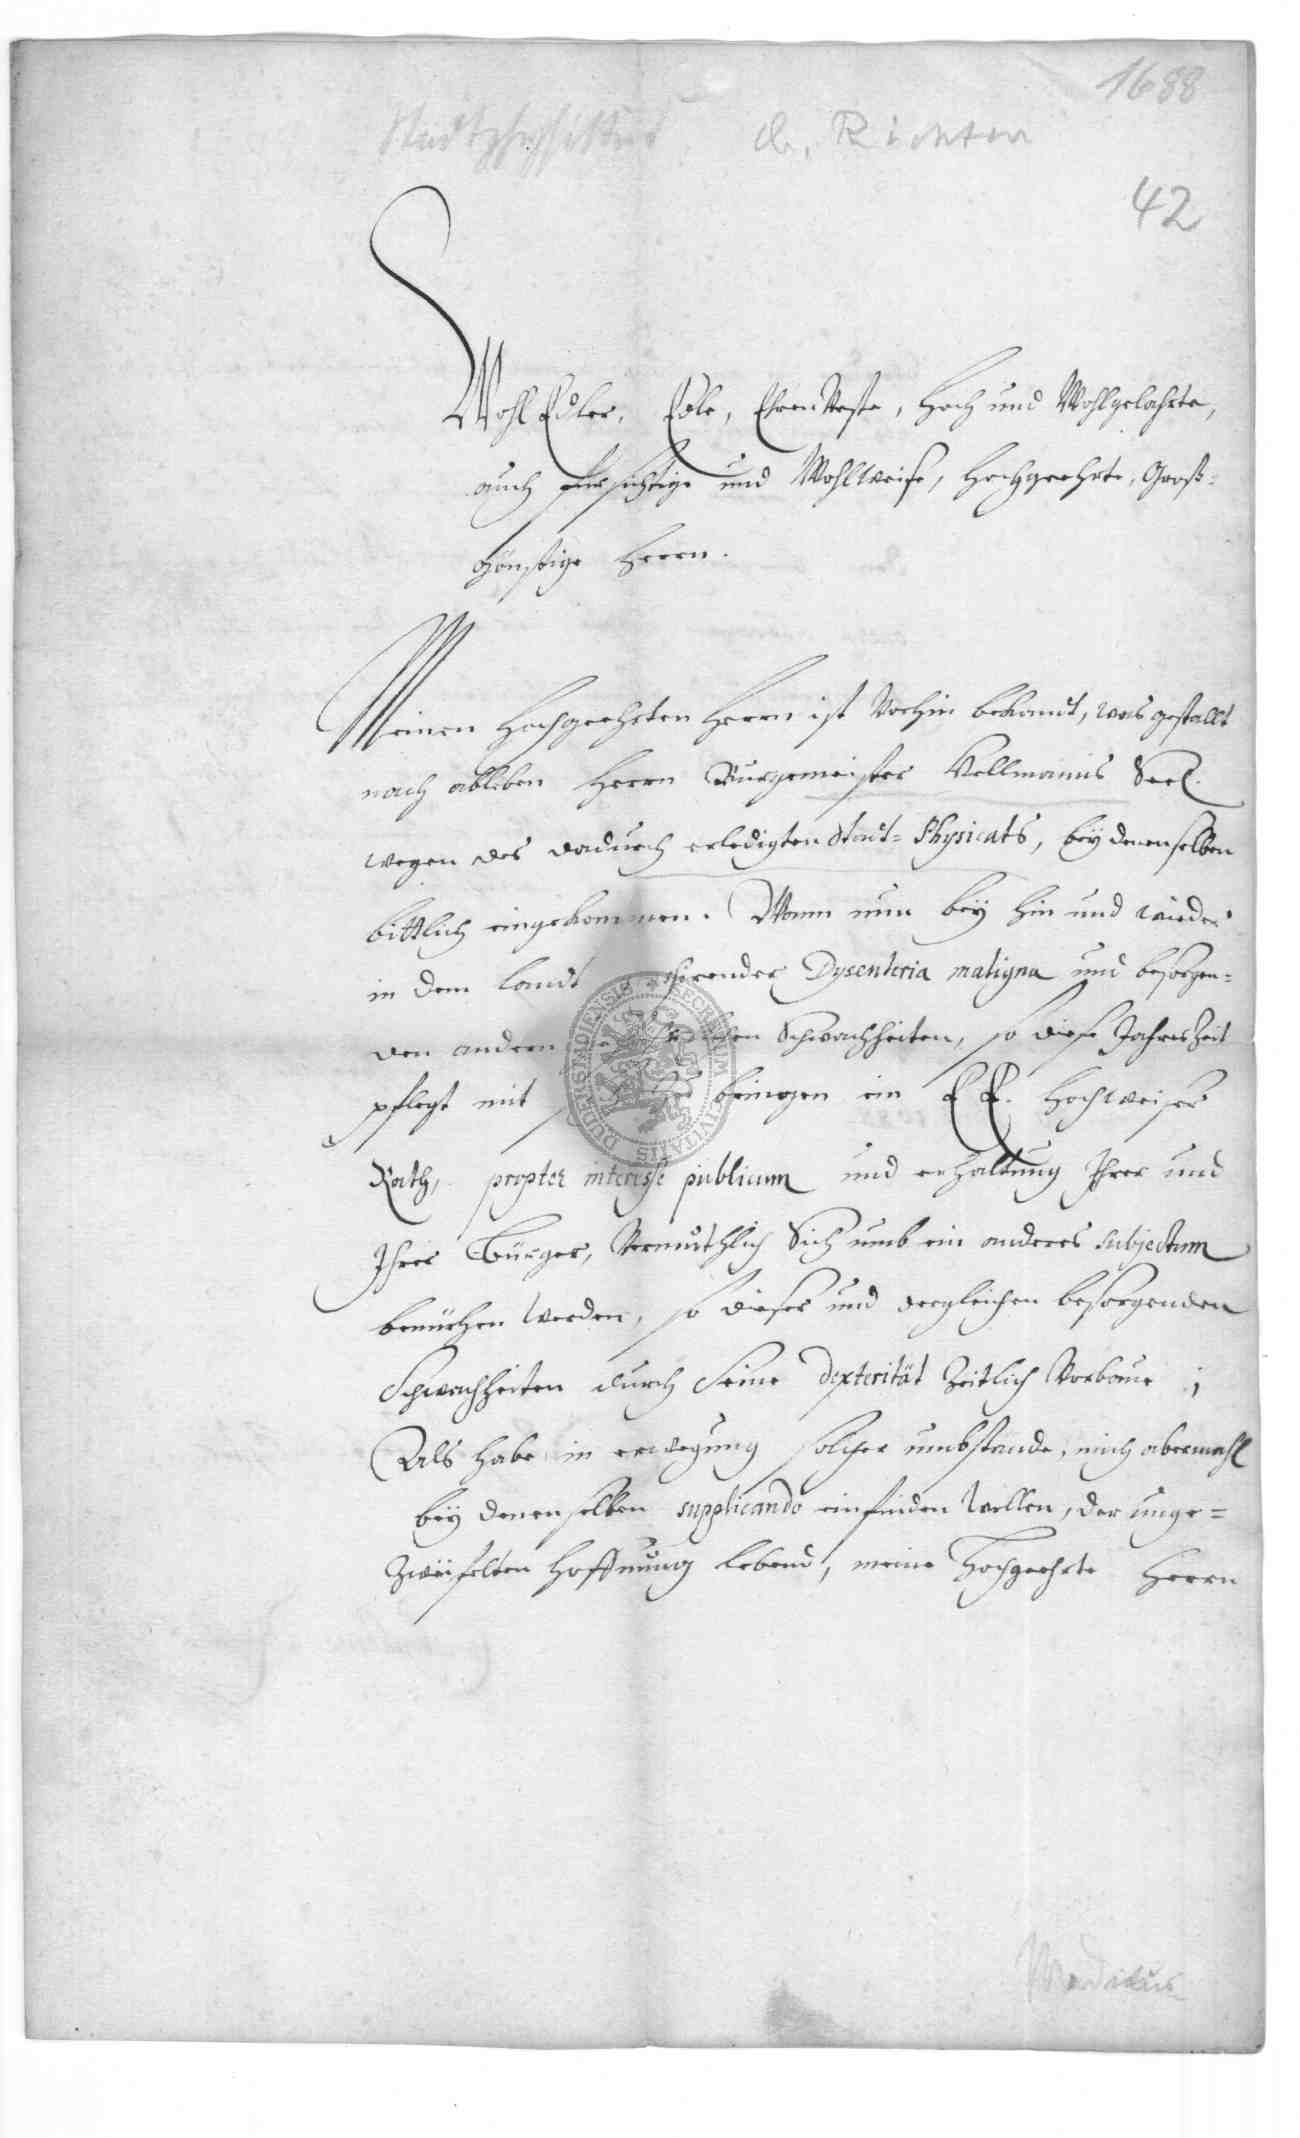 1688
Stadtphysikus Dr. Richter
42
WohlEdler, Edle, EhrenVeste, Hoch und Wohlgelahrte,
auch fursichtige und Wohlweise, Hochgeehrte, Groß-
gönstige Herrn.
Meinen Hochgeehrten Herrn ist Vorhin bekandt, was gestallt
nach ableben Herrn Burgemeister Hellmanns Seel.
wegen des dadurch erledigten Stadt-Physicats, beÿ denenselben
bittlich eingekommen. Wann nun beÿ hin und wieder
in dem Landt Dysenteria maligna und besorgen-
den andern Schwachheiten, so diese JahresZeit
pflegt mit bringen ein E E. Hochweiser
Rath, propter interesse publicum und erhaltung Ihrer und
Ihrer Bürger, Vermuthlich Sich umb ein anderes subjectum
bemühen werden, so dieser und dergleichen besorgenden
Schwachheiten durch Seine dexterität Zeitlich Vorbaue ;
Als habe in erwegung solcher umbstände, mich abermahl
beÿ denenselben supplicando einfinden Wollen, der unge-
Zweifelten Hoffnung lebend, meine Hochgeehrte Herrn
Medicus
SECRETUM CIVITATIS DUDERSTADIENSIS